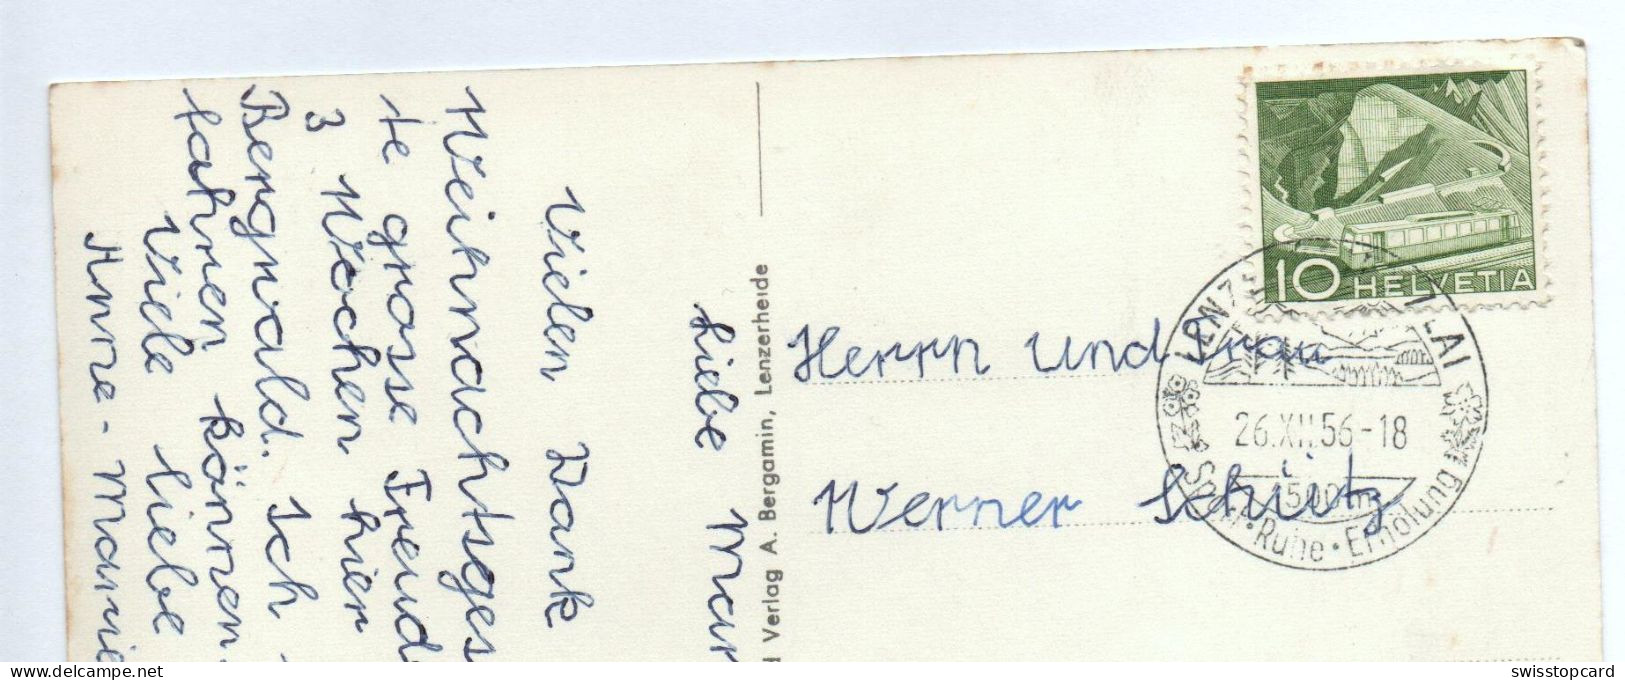 Liebe Mar
Vielen Dank
Weihnachtsges
te grosse Freud
3 Wochen hier
Bergwald. Ich
fahren können
Viele liebe
Anne-Marie
d Verlag A. Bergamin, Lenzerheide
10 HELVETIA
LENZ LAI
26.XII.56-18
1500 m
Sport · Ruhe · Erholung
Herrn und Frau
Werner Schutz
swisstopcard